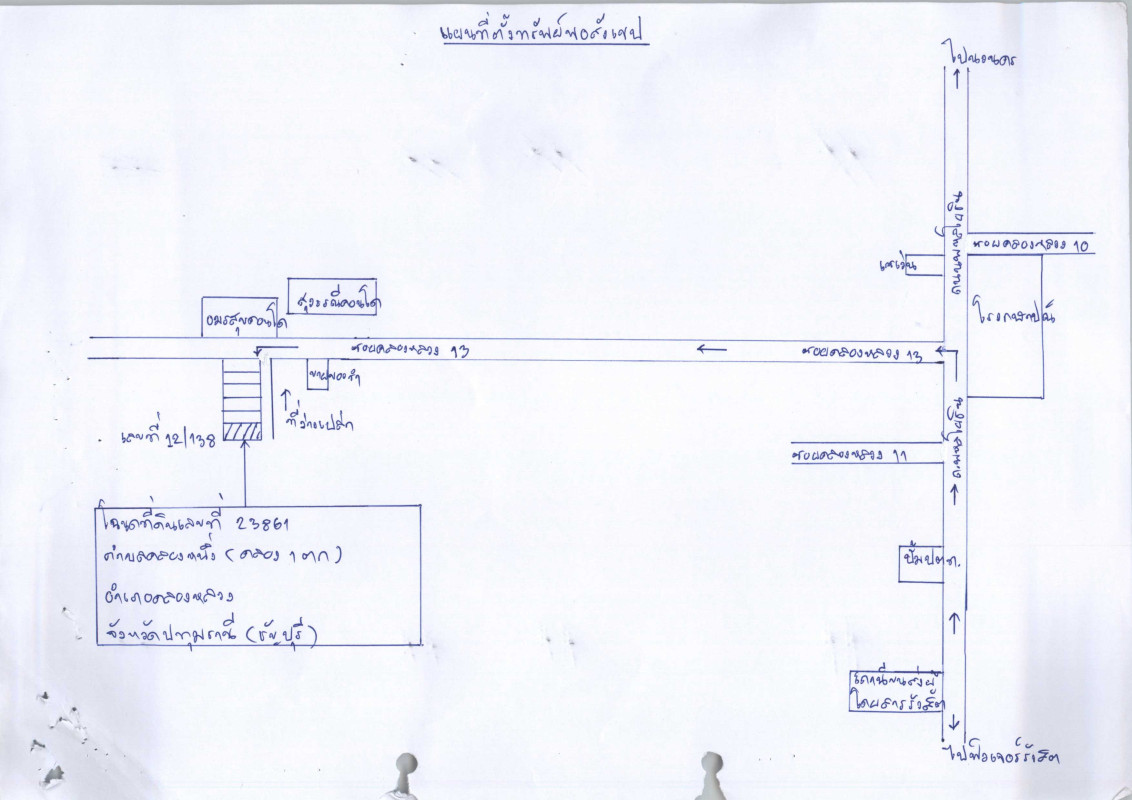 แผนที่ตั้งทรัพย์พอสังเขป
ไปนวนคร
ถนนพหลโยธิน
ซอยคลองหลวง 10
เซเว่น
โรงกษาปณ์
สุวรรณีคอนโด
อมรสุขคอนโด
ซอยคลองหลวง 13
ซอยคลองหลวง 13
ขายของชำ
ที่ว่างเปล่า
เลขที่ 12/138
ถ.พหลโยธิน
ซอยคลองหลวง 11
โฉนดที่ดินเลขที่ 23861
ตำบลคลองหนึ่ง (คลอง 1 ตก)
อำเภอคลองหลวง
จังหวัดปทุมธานี (ธัญบุรี)
ปั้มปตท.
สถานีขนส่งผู้
โดยสารรังสิต
ไปฟิวเจอร์รังสิต